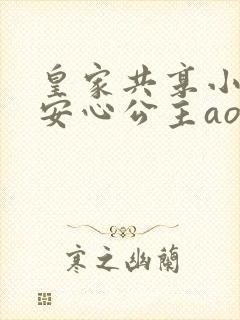 皇家共享小
安心公主ao
寒之幽蘭